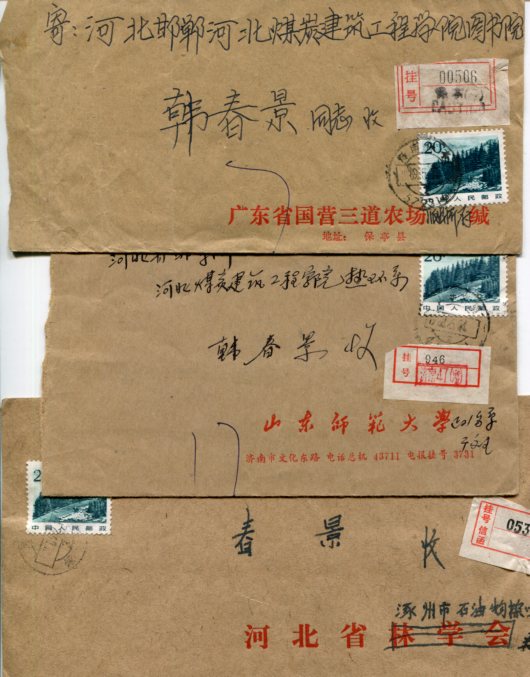 寄:河北邯郸河北煤炭建筑工程学院图书馆
挂号
00506
韩春景 同志 收
20
中国人民邮政
广东省国营三道农场 缄
地址: 保亭县
河北煤炭建筑工程学院
20
中国人民邮政
韩春景 收
挂号
946
山东师范大学
济南市文化东路 电话总机 43711 电报挂号 3731
2
中国人民邮政
挂号信函
053
春景 收
涿州市石油物探
河北省林学会